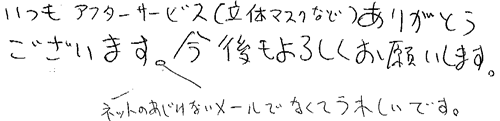 いつもアフターサービス(立体マスクなど)ありがとう
ございます。今後もよろしくお願いします。
ネットのあじけないメールでなくてうれしいです。